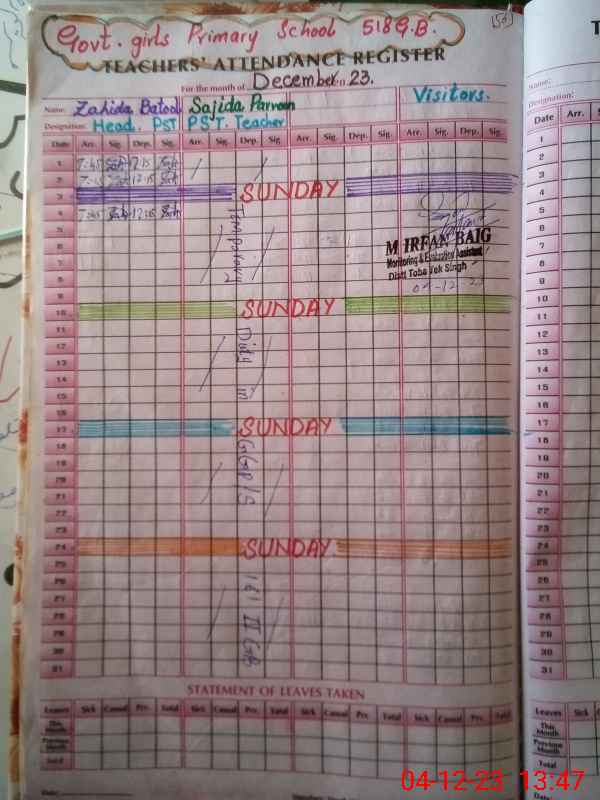 Govt. girls Primary School 518 G.B.
TEACHERS' ATTENDANCE REGISTER
For the month of December. 23.
Name: Zahida Batool Sajida Parveen Visitors.
Designation: Head. PST PST. Teacher
Date Arr. Sig. Dep. Sig. Arr. Sig. Dep. Sig. Arr. Sig. Dep. Sig. Arr. Sig. Dep. Sig.
1 7-45 12-15
2 7-45 12-15
3 SUNDAY
4 7-45 12-15
5
6
7
8
9
10 SUNDAY
11
12
13
14
15
16
17 SUNDAY
18
19
20
21
22
23
24 SUNDAY
25
26
27
28
29
30
31
Temporary Duty in GGP/S 161 II GB
M IRFAN BAIG
Monitoring & Evaluation Assistant
Distt Toba Tek Singh
04-12-23
STATEMENT OF LEAVES TAKEN
Leaves Sick Casual Prv. Total Sick Casual Prv. Total Sick Casual Prv. Total Sick Casual Prv. Total
This Month
Previous Month
Total
Date:
Name:
Designation:
Date Arr.
1
2
3
4
5
6
7
8
9
10
11
12
13
14
15
16
17
18
19
20
21
22
23
24
25
26
27
28
29
30
31
Leaves Sick
This Month
Previous Month
Total
Date:
04-12-23 13:47